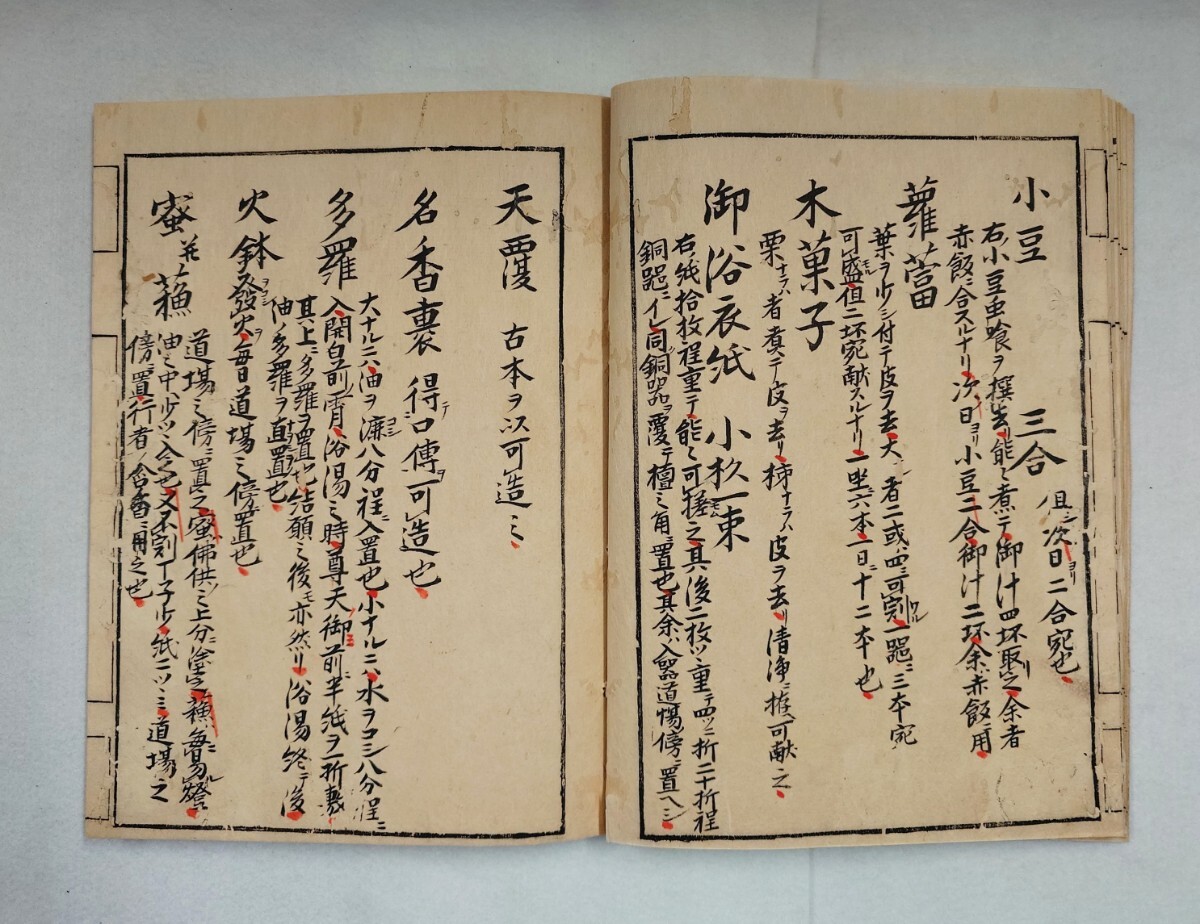 小豆 三合 但シ次日ヨリ二合宛也
右小豆虫喰ヲ撰去リ能々煮テ御汁四坏取之余者
赤飯ニ合スルナリ次日ヨリ小豆二合御汁二坏余ハ赤飯ニ用
蘿蔔
葉ヲ少シ付テ皮ヲ去大ナル者ハ二或ハ四ニ可割一器ニ三本宛
可盛但二坏宛献スルナリ一坐六本一日ニ十二本也
木菓子
栗ナラハ者煮テ皮ヲ去リ柿ナラハ皮ヲ去リ清浄ニ可献之
御浴衣紙 小杉一束
右紙拾枚程重テ能々可揉之其後二枚ツヽ重テ四ツニ折二十折程
銅器ニ入レ同銅器ヲ覆テ檀之角ニ置也其余ハ入器道場傍ニ置ヘシ
天覆 古本ヲ以可造之
名香裹 得テ口傳ヲ可造也
多羅
大ナルニハ油ヲ漉コシ八分程ニ入置也小ナルニハ水ヲコシ八分程ニ
入開白前宵浴湯之時尊天ノ御前ニ半紙ヲ一折敷
其上ニ多羅ヲ置也結願之後モ亦然リ浴湯終テ後
油ノ多羅ヲ直ニ置也
火鉢 発火ヲ毎日道場之傍ニ置也
蜜并蘓
道場之傍ニ置之蜜佛供ノ之上分ニ塗之蘓
油之中ヘ少ツヽ入之也又不割丁子少紙ニツヽミ道場之
傍ニ置行者ノ含香ニ用之也